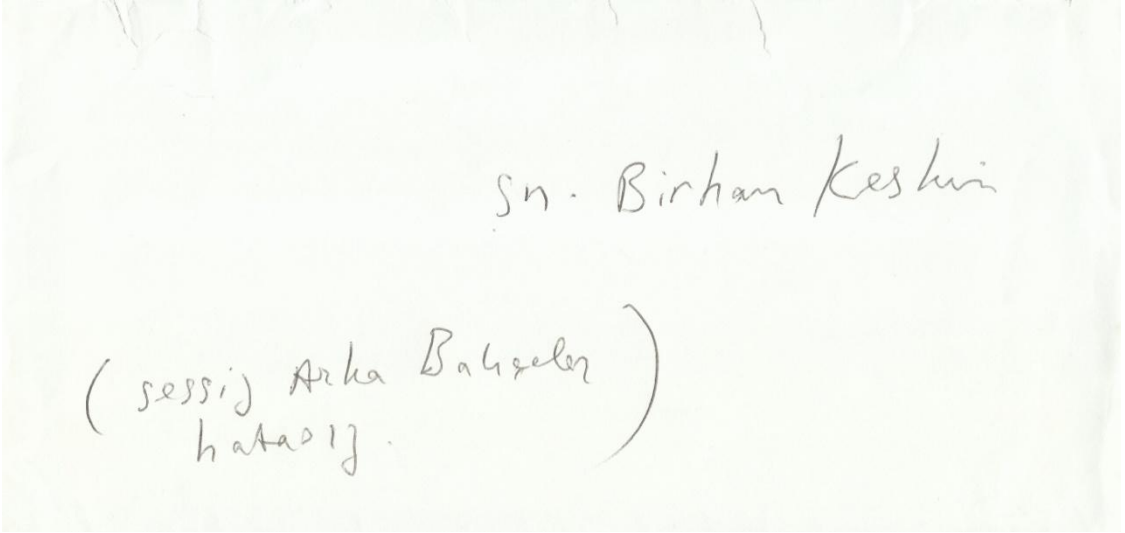 Sn. Birhan Keskin
(sessiz Arka Bahçeler)
hatasız.